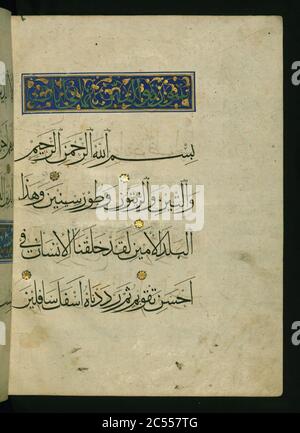 بسم الله الرحمن الرحيم
والتين والزيتون وطور سينين وهذا
البلد الامين لقد خلقنا الانسان في
احسن تقويم ثم رددناه اسفل سافلين
alamy
Image ID: 2C557TG
www.alamy.com